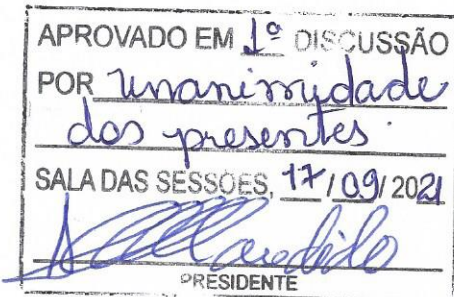 APROVADO EM 1º DISCUSSÃO
POR unanimidade
dos presentes.
SALA DAS SESSÕES, 17/09/2021
PRESIDENTE